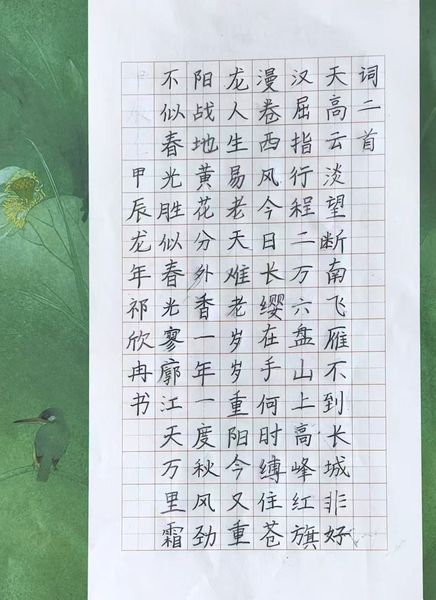 词二首
天高云淡望断南飞雁不到长城非好
汉屈指行程二万六盘山上高峰红旗
漫卷西风今日长缨在手何时缚住苍
龙人生易老天难老岁岁重阳今又重
阳战地黄花分外香一年一度秋风劲
不似春光胜似春光寥廓江天万里霜
甲辰龙年祁欣冉书